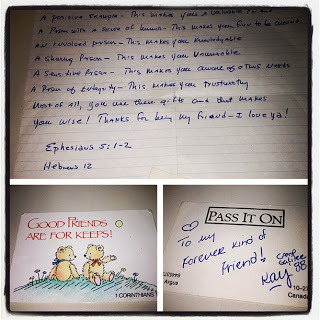 A positive example - This makes you a valuable
A Person with a sense of humor - This makes you fun to be around
An involved person - This makes you Knowledgable
A Sharing Person - This makes you Vulnerable
A Sensitive Person - This makes you aware of others Needs
A Person of integrity - This makes you trustworthy
Most of all, you use these gifts and that makes
you wise! Thanks for being my friend - I love ya!
Ephesians 5:1-2
Hebrews 12
GOOD FRIENDS
ARE FOR KEEPS!
1 CORINTHIANS
PASS IT ON
To my
forever kind of
friend!
Kay
88
Argus
10-27
Canada